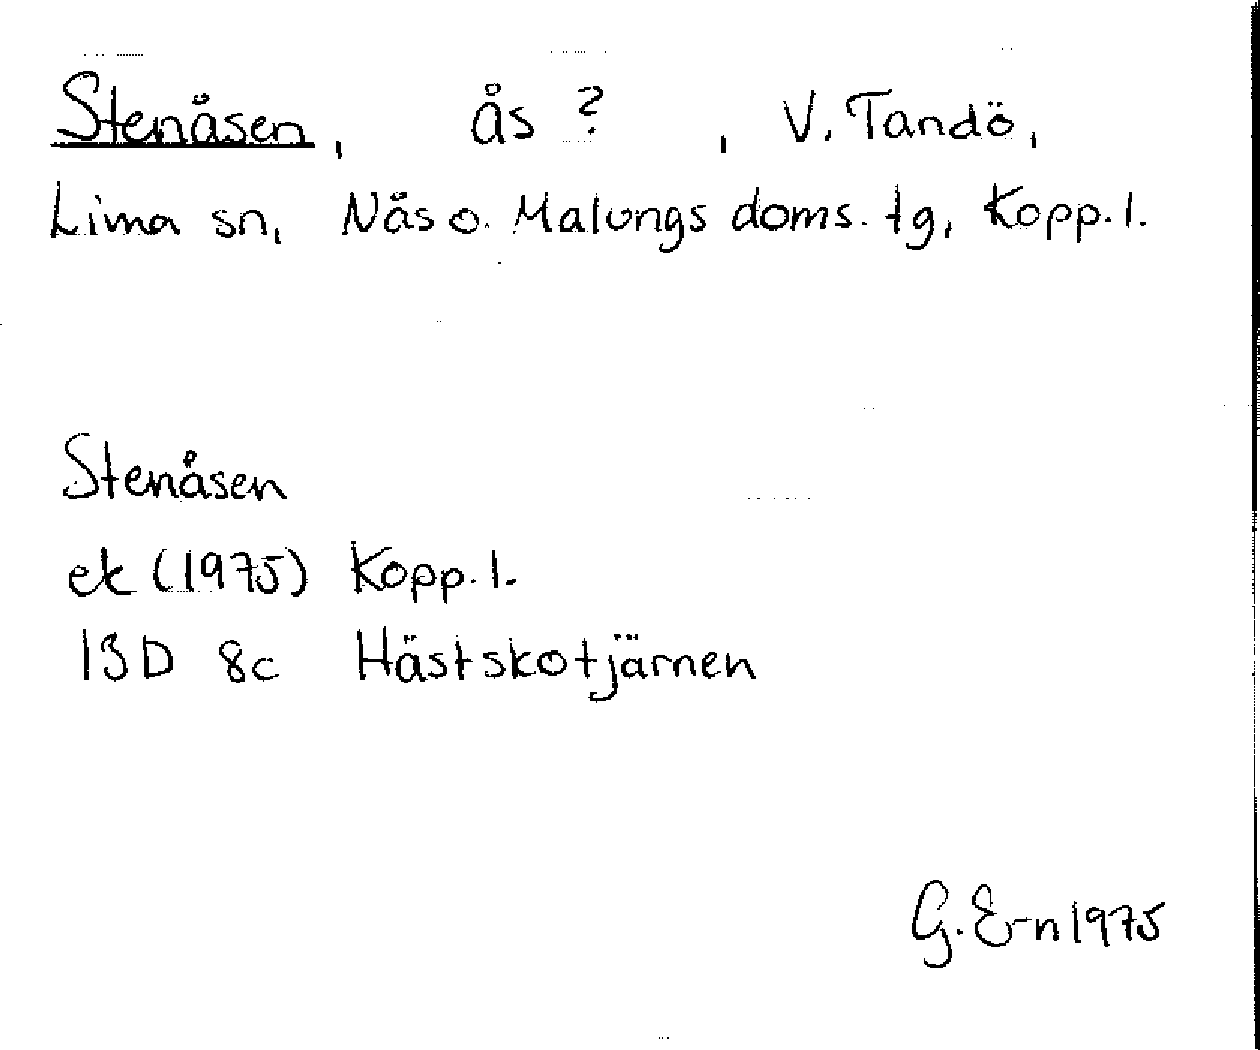 Stenåsen, ås ?, V. Tandö,
Lima sn, Nås o. Malungs doms. tg, Kopp. l.
Stenåsen
ek (1975) Kopp. l.
13D 8c Hästskotjärnen
G. E-n 1975